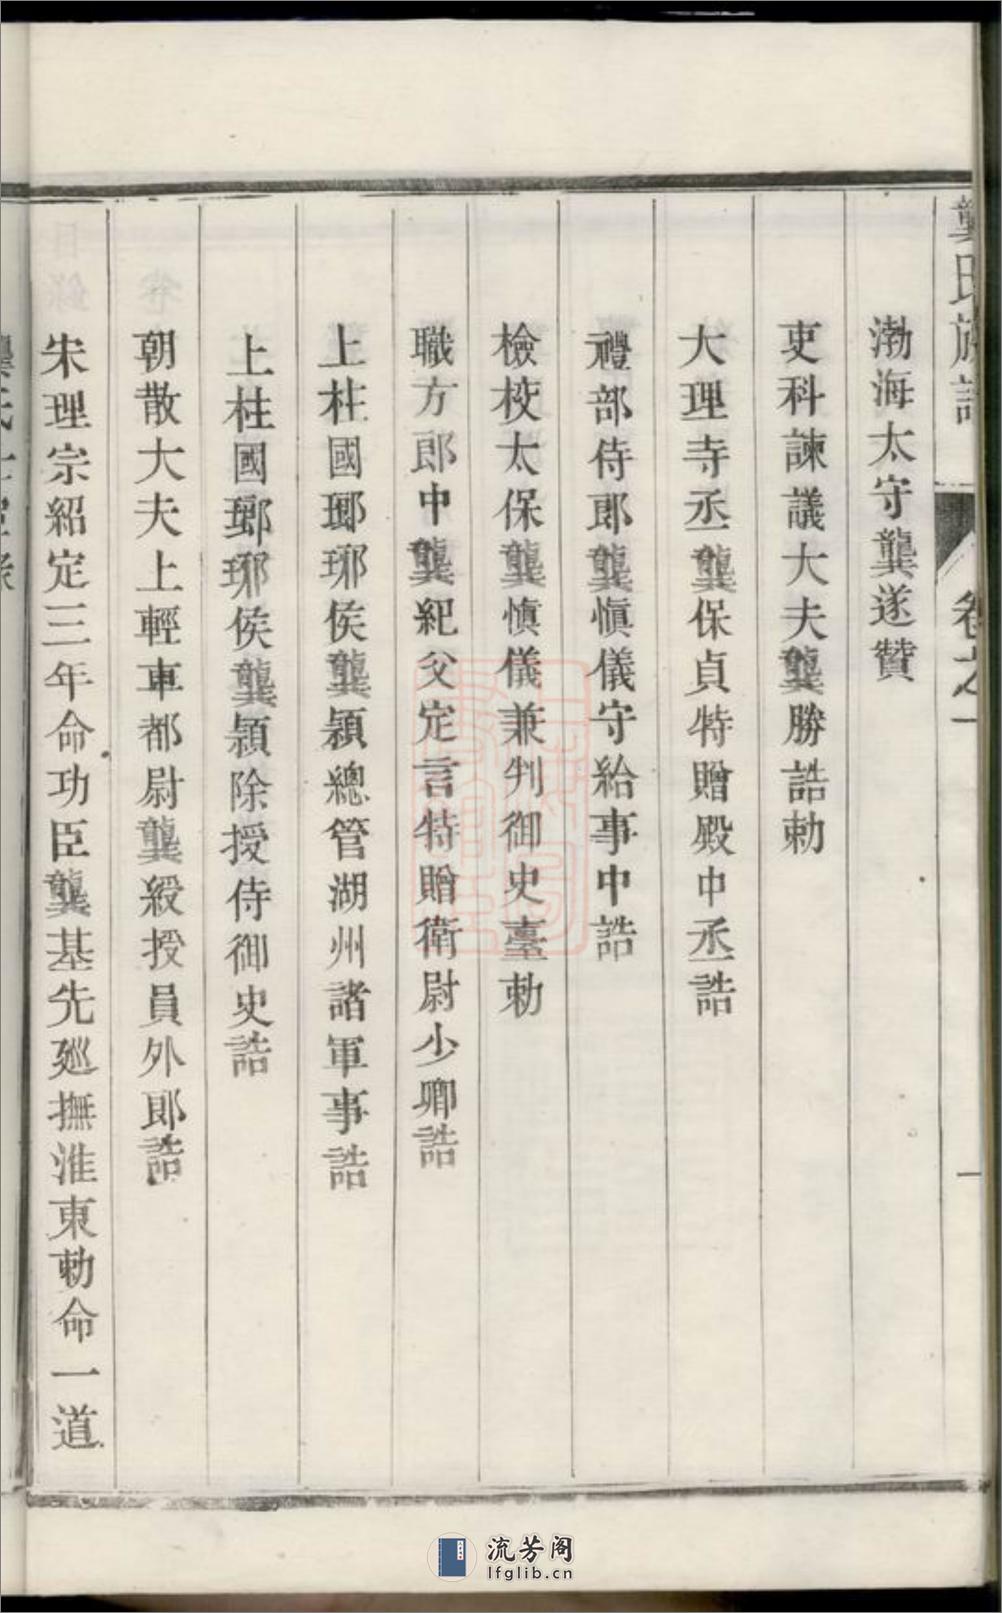 龔氏族譜 卷之一 一
渤海太守龔遂贊
吏科諫議大夫龔勝誥勅
大理寺丞龔保貞特贈殿中丞誥
禮部侍郎龔慎儀守給事中誥
檢校太保龔慎儀兼判御史臺勅
職方郎中龔紀父定言特贈衛尉少卿誥
上柱國瑯琊侯龔穎總管湖州諸軍事誥
上柱國瑯琊侯龔穎除授侍御史誥
朝散大夫上輕車都尉龔綬授員外郎誥
宋理宗紹定三年命功臣龔基先廵撫淮東勅命一道
流芳阁
lfglib.cn